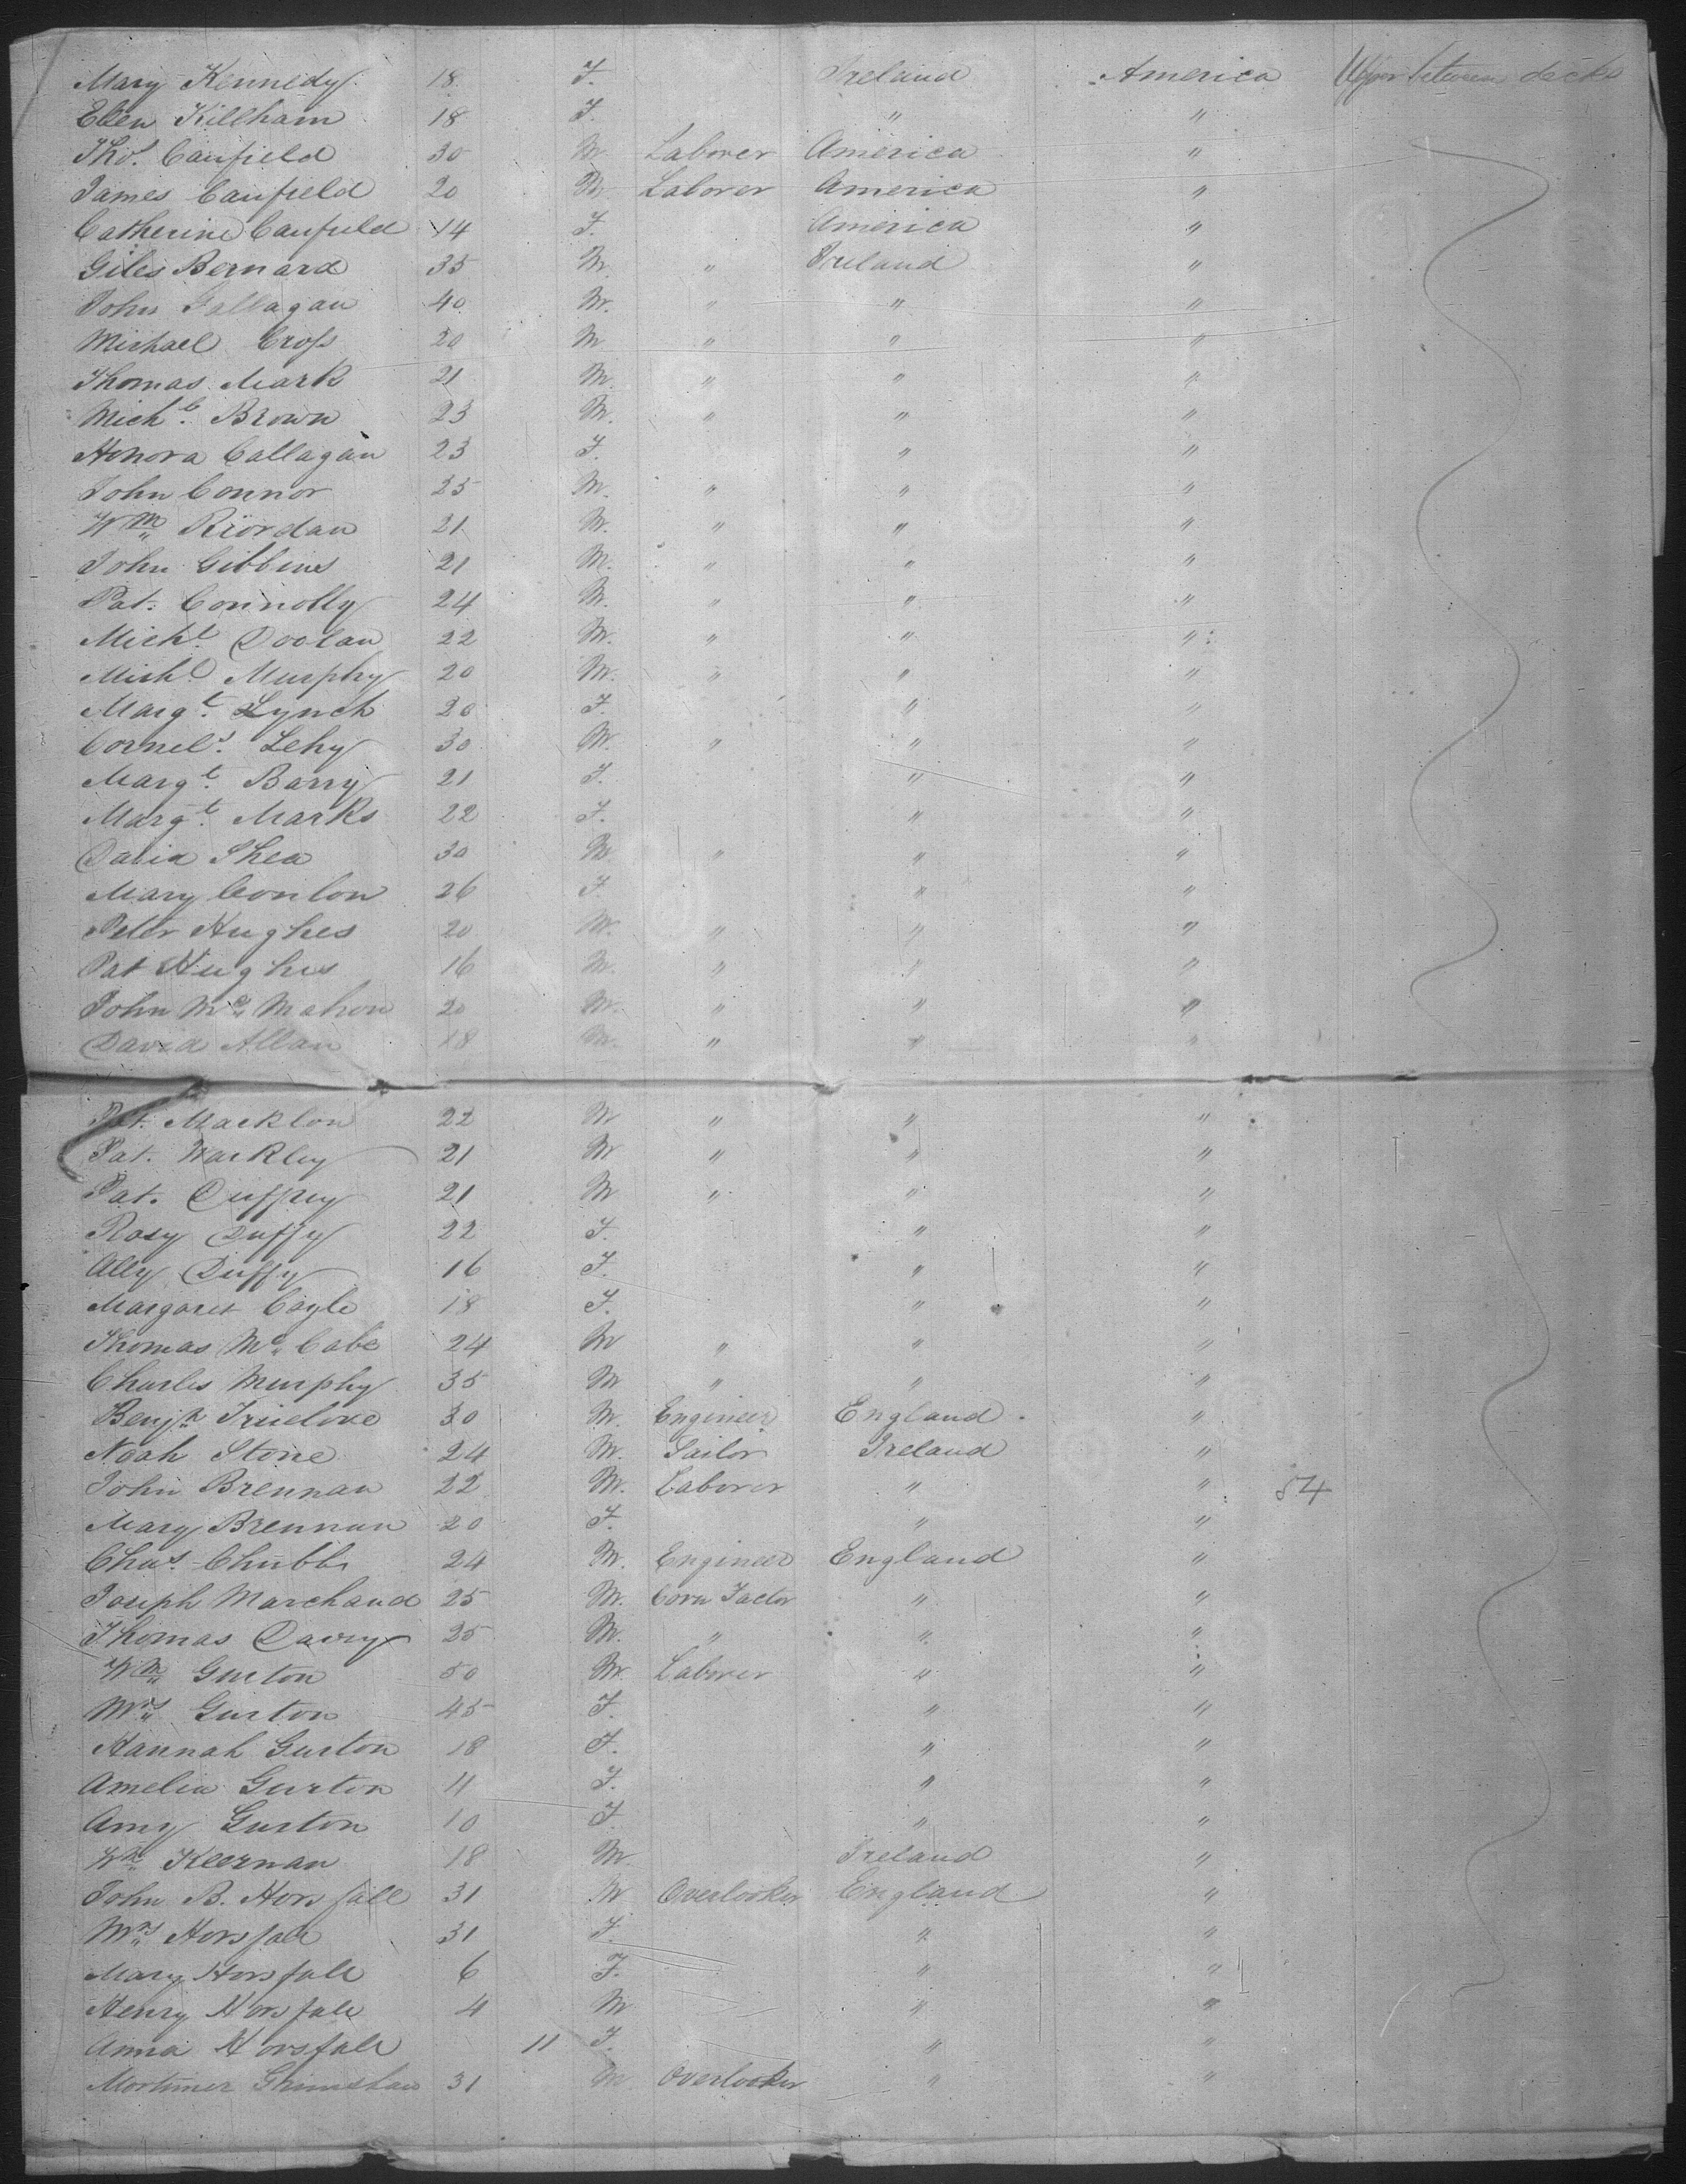 Mary Kennedy 18 F. Ireland America Upper between decks
Ellen Killham 18 F. " "
Thos. Caufield 30 M. Laborer America "
James Caufield 20 M. Laborer America "
Catherine Caufield 14 F. America "
Giles Bernard 35 M. " Ireland "
John Gallagan 40 M. " " "
Michael Cross 20 M " " "
Thomas Mark 21 M. " " "
Michl. Brown 23 M. " " "
Honora Callagan 23 F. " "
John Connor 25 M. " " "
Wm Riordan 21 M. " " "
John Gibbins 21 M. " " "
Pat. Connolly 24 M. " " "
Michl. Doolan 22 M. " " "
Michl. Murphy 20 M. " " "
Margt. Lynch 20 F. " "
Cornels. Lehy 30 M. " " "
Margt. Barry 21 F. " "
Margt. Marks 22 F. " "
David Shea 30 M " " "
Mary Conlon 26 F. " "
Peter Hughes 20 M. " " "
Pat Hughes 16 M. " " "
John Mc Mahon 20 M. " " "
David Allan 18 M. " " "
Pat. Macklon 22 M " " "
Pat. Warkley 21 M " " "
Pat. Duffey 21 M " " "
Rosy Duffy 22 F. " "
Ally Duffy 16 F. " "
Margaret Coyle 18 F. " "
Thomas Mc Cabe 24 M " " "
Charles Murphy 35 M " " "
Benjn Truelove 30 M. Engineer England "
Noah Stone 24 M. Sailor Ireland "
John Brennan 22 M. Laborer " " 54
Mary Brennan 20 F. " "
Chas. Chubb 24 M. Engineer England "
Joseph Marchand 25 M. Corn Factor " "
Thomas Davry 25 M. " " "
Wm Gurton 50 M. Laborer " "
Mrs Gurton 45 F. " "
Hannah Gurton 18 F. " "
Amelia Gurton 11 F. " "
Amy Gurton 10 F. " "
Wm Keernan 18 M. Ireland "
John B. Horsfall 31 M Overlooker England "
Mrs Horsfall 31 F. " "
Mary Horsfall 6 F. " "
Henry Horsfall 4 M " "
Anna Horsfall 11 F. " "
Mortimer Grimshaw 31 M Overlooker " "